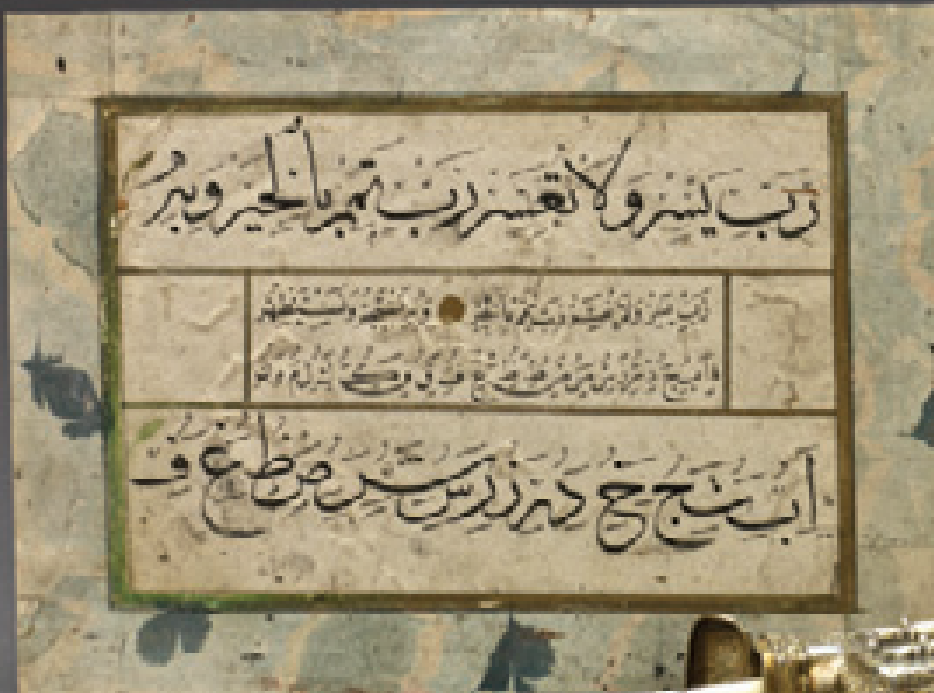 رب يسر ولا تعسر رب تمم بالخير وبه
رب يسر ولا تعسر رب تمم بالخير وبه
ا ب ت ث ج ح خ د ذ ر ز س ش ص ض ط ظ ع غ ف ق
ا ب ت ث ج ح خ د ذ ر ز س ش ص ض ط ظ ع غ ف